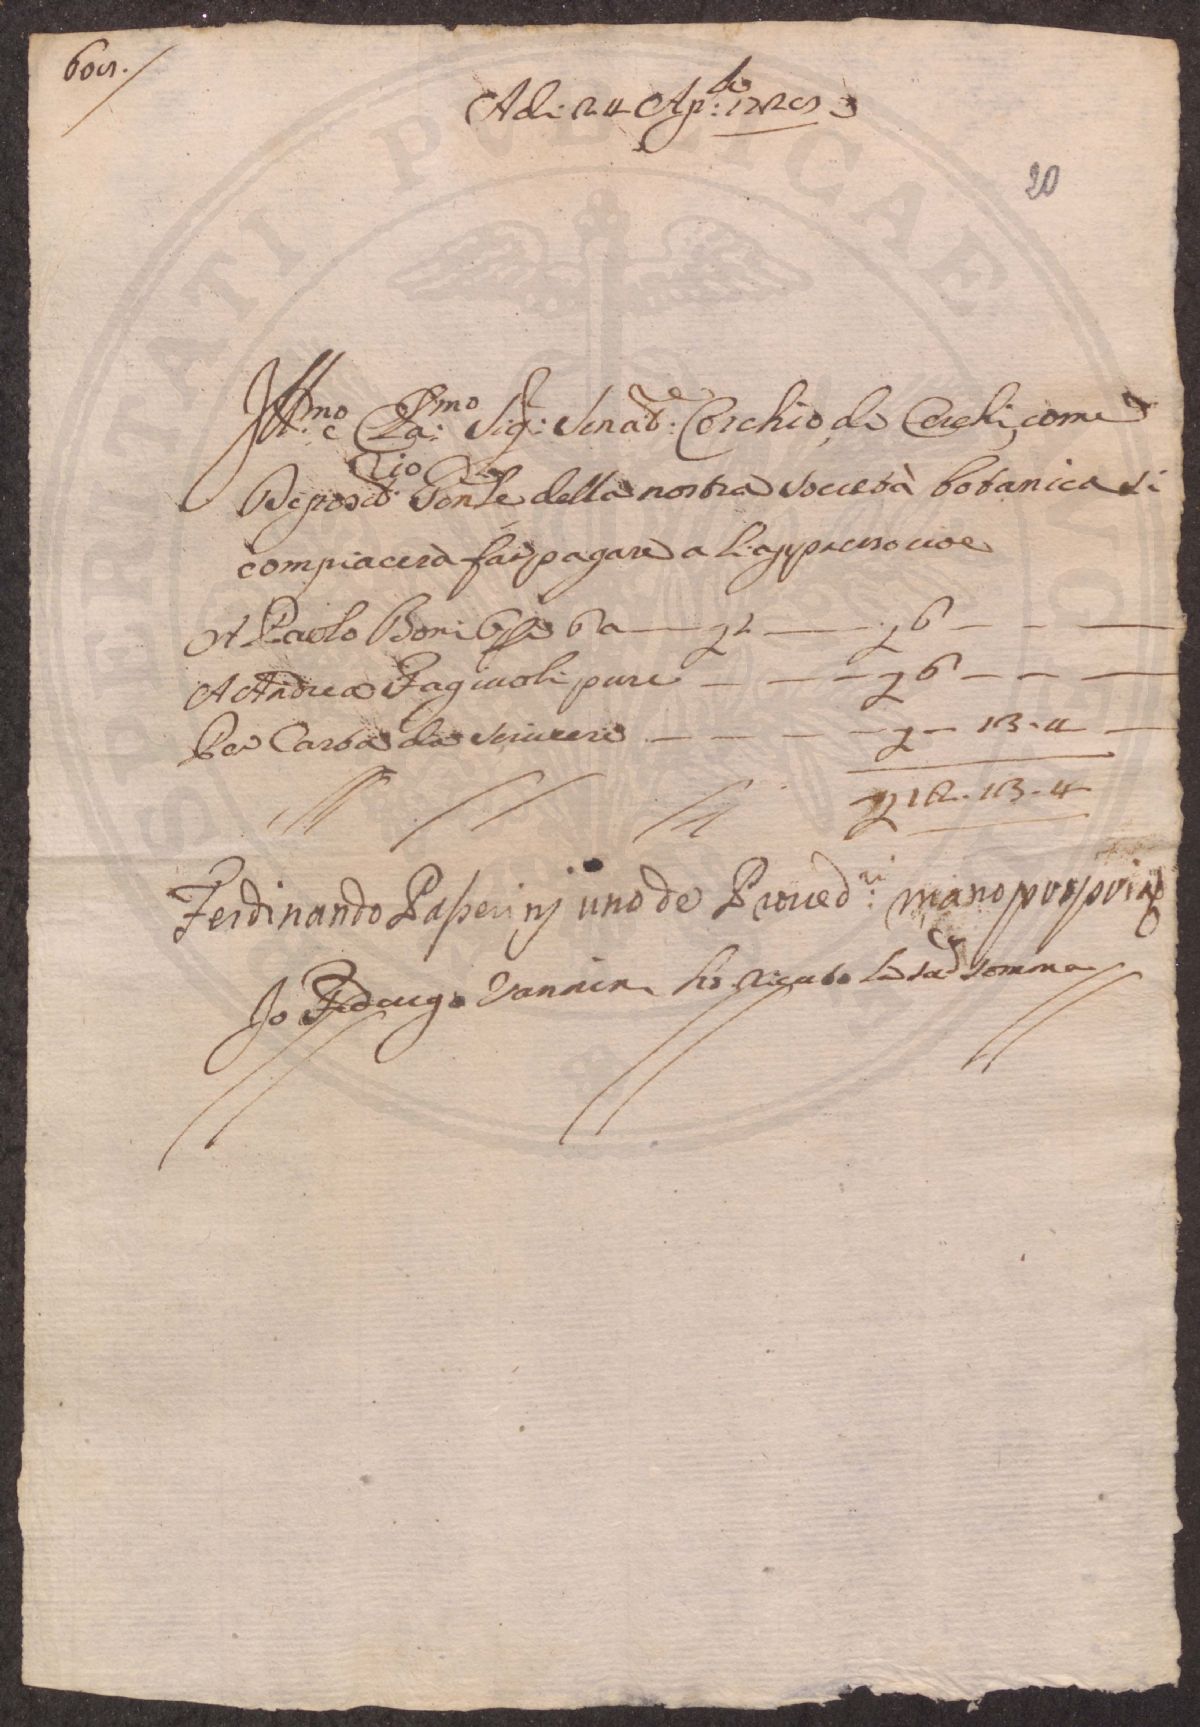 Adi: 24 Ap:le 1725
20
Ill:mo e Cla:mo Sig:r Senat:re Cerchio de Cerchi, come
Deposit:rio Gen:le della nostra società botanica si
compiacerà far pagare a li appresso cioe
A Paolo Boni 6 a — 6 — — —
A Andrea Fagiuoli pure — — — 6 — — —
Per Carta da scrivere — — — — — 13 - 4 —
12 - 13 - 4
Ferdinando Passerinj uno de Proved:ri mano propria
Io Vannini hò riceuto la sad:a somma